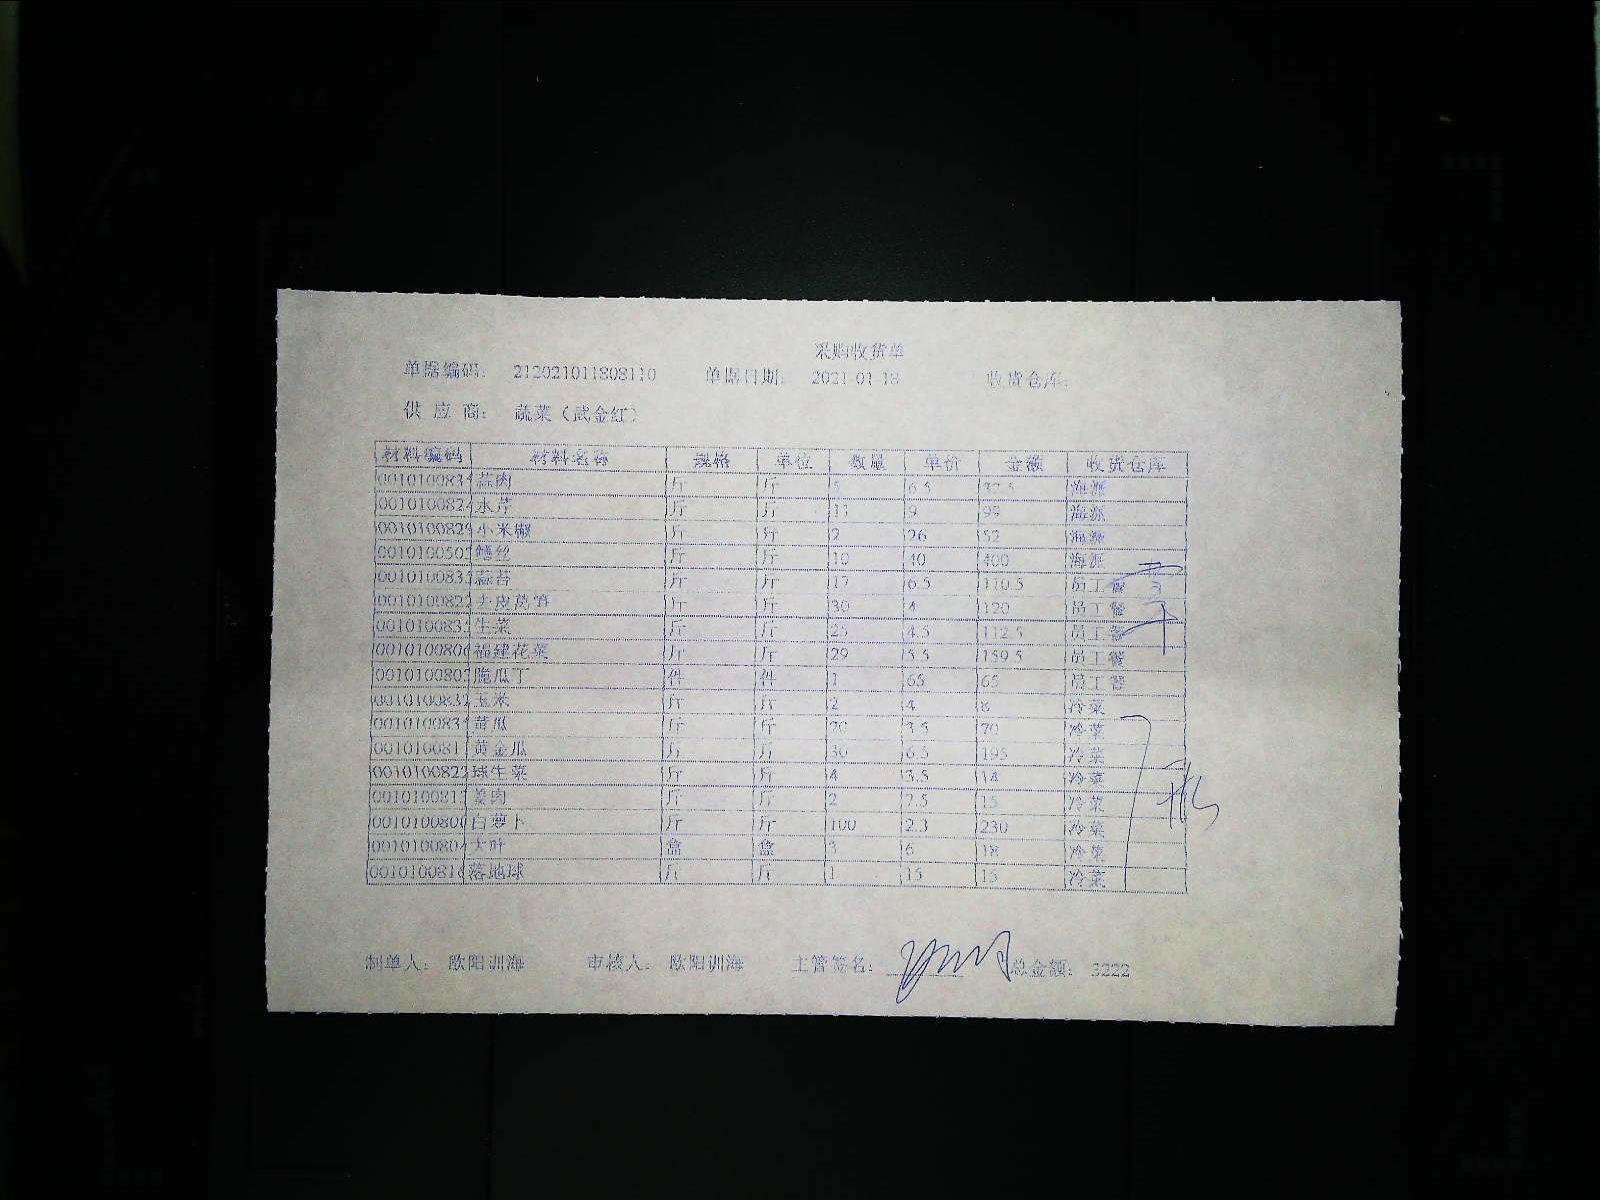 采购收货单
单据编码： 212021011808110 单据日期： 2021-01-18 收货仓库：
供 应 商： 蔬菜（武金红）
材料编码 材料名称 规格 单位 数量 单价 金额 收货仓库
0010100834 蒜肉 斤 斤 5 6.5 32.5 海派
0010100824 水芹 斤 斤 11 9 99 海派
0010100829 小米椒 斤 斤 2 26 52 海派
0010100502 鳝丝 斤 斤 10 40 400 海派
0010100835 蒜苔 斤 斤 17 6.5 110.5 员工餐
0010100822 去皮莴笋 斤 斤 30 4 120 员工餐
0010100835 生菜 斤 斤 25 4.5 112.5 员工餐
0010100806 福建花菜 斤 斤 29 5.5 159.5 员工餐
0010100805 脆瓜丁 件 件 1 65 65 员工餐
0010100832 玉米 斤 斤 2 4 8 冷菜
0010100834 黄瓜 斤 斤 20 3.5 70 冷菜
001010081 黄金瓜 斤 斤 30 6.5 195 冷菜
0010100822 球生菜 斤 斤 4 3.5 14 冷菜
001010081 姜肉 斤 斤 2 7.5 15 冷菜
0010100800 白萝卜 斤 斤 100 2.3 230 冷菜
0010100804 大叶 盒 盒 3 6 18 冷菜
0010100816 落地球 斤 斤 1 15 15 冷菜
制单人： 欧阳训海 审核人： 欧阳训海 主管签名： 总金额： 3222